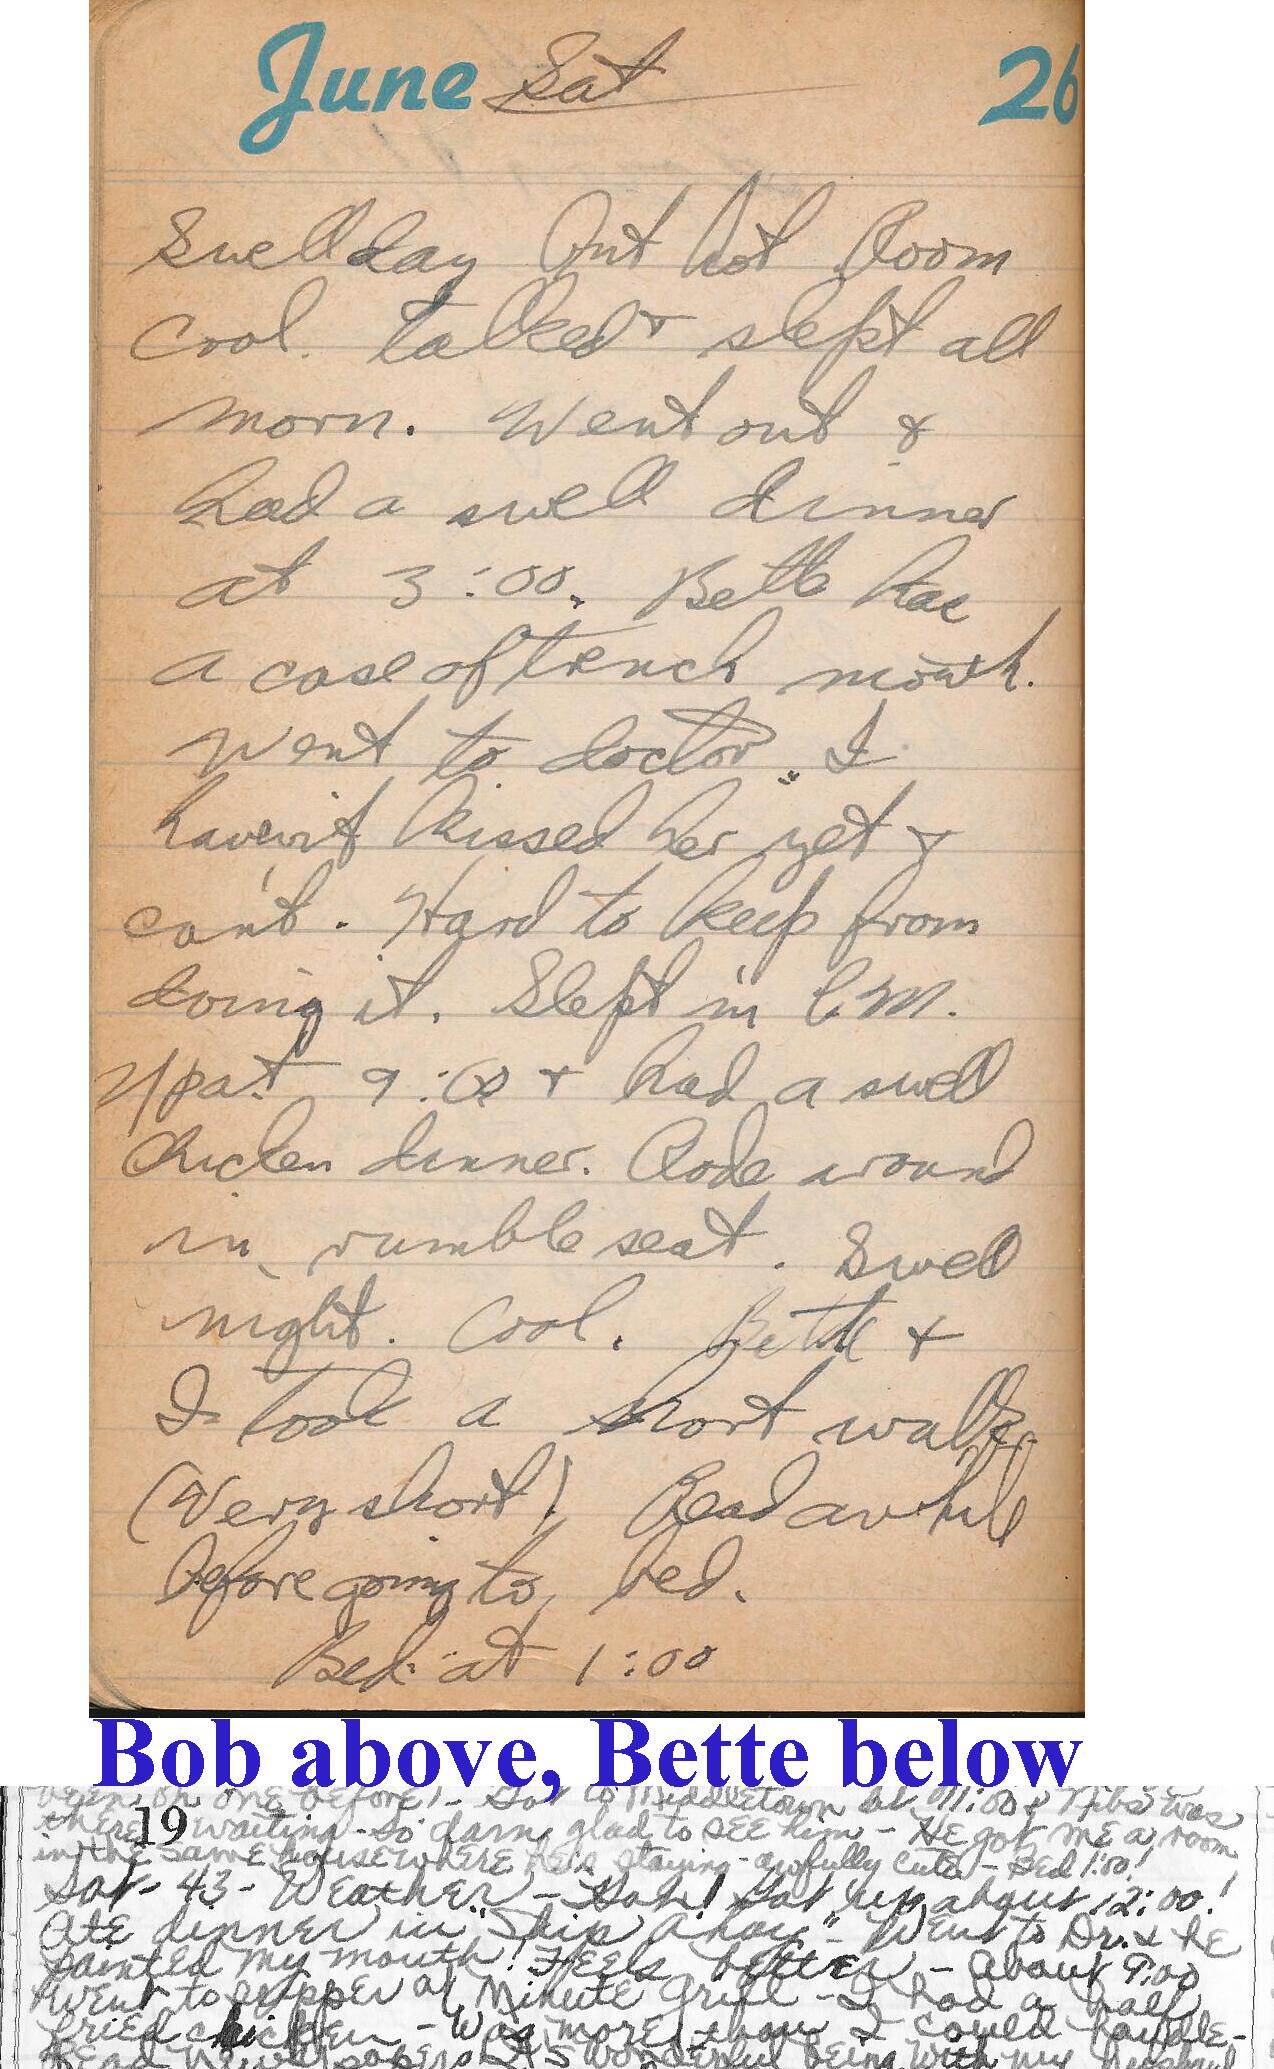 June Sat 26
Swell day but hot Room
cool. talked & slept all
morn. Went out &
had a swell dinner
at 3:00. Bette has
a case of trench mouth.
Went to doctor. I
haven't kissed her yet &
can't. Hard to keep from
doing it. Slept in P.M.
Up at 9:00 & had a swell
chicken dinner. Rode around
in rumble seat. Swell
night. Cool. Bette &
I took a short walk
(Very short). Read awhile
before going to bed.
Bed at 1:00
Bob above, Bette below
been on one before! - Got to Middletown at 11:00 & Nibs was
there waiting - so darn glad to see him - He got me a room
in the same house where he's staying - awfully cute - Bed 1:00!
19
Sat - 43 - Weather - Hot! Got up about 12:00!
Ate dinner in "Ship Ahoy" - Went to Dr. & he
painted my mouth! Feels better - About 9:00
went to supper at Minute Grill - I had a half
fried chicken - Was more than I could handle -
Read newspapers. It's wonderful being with my husband